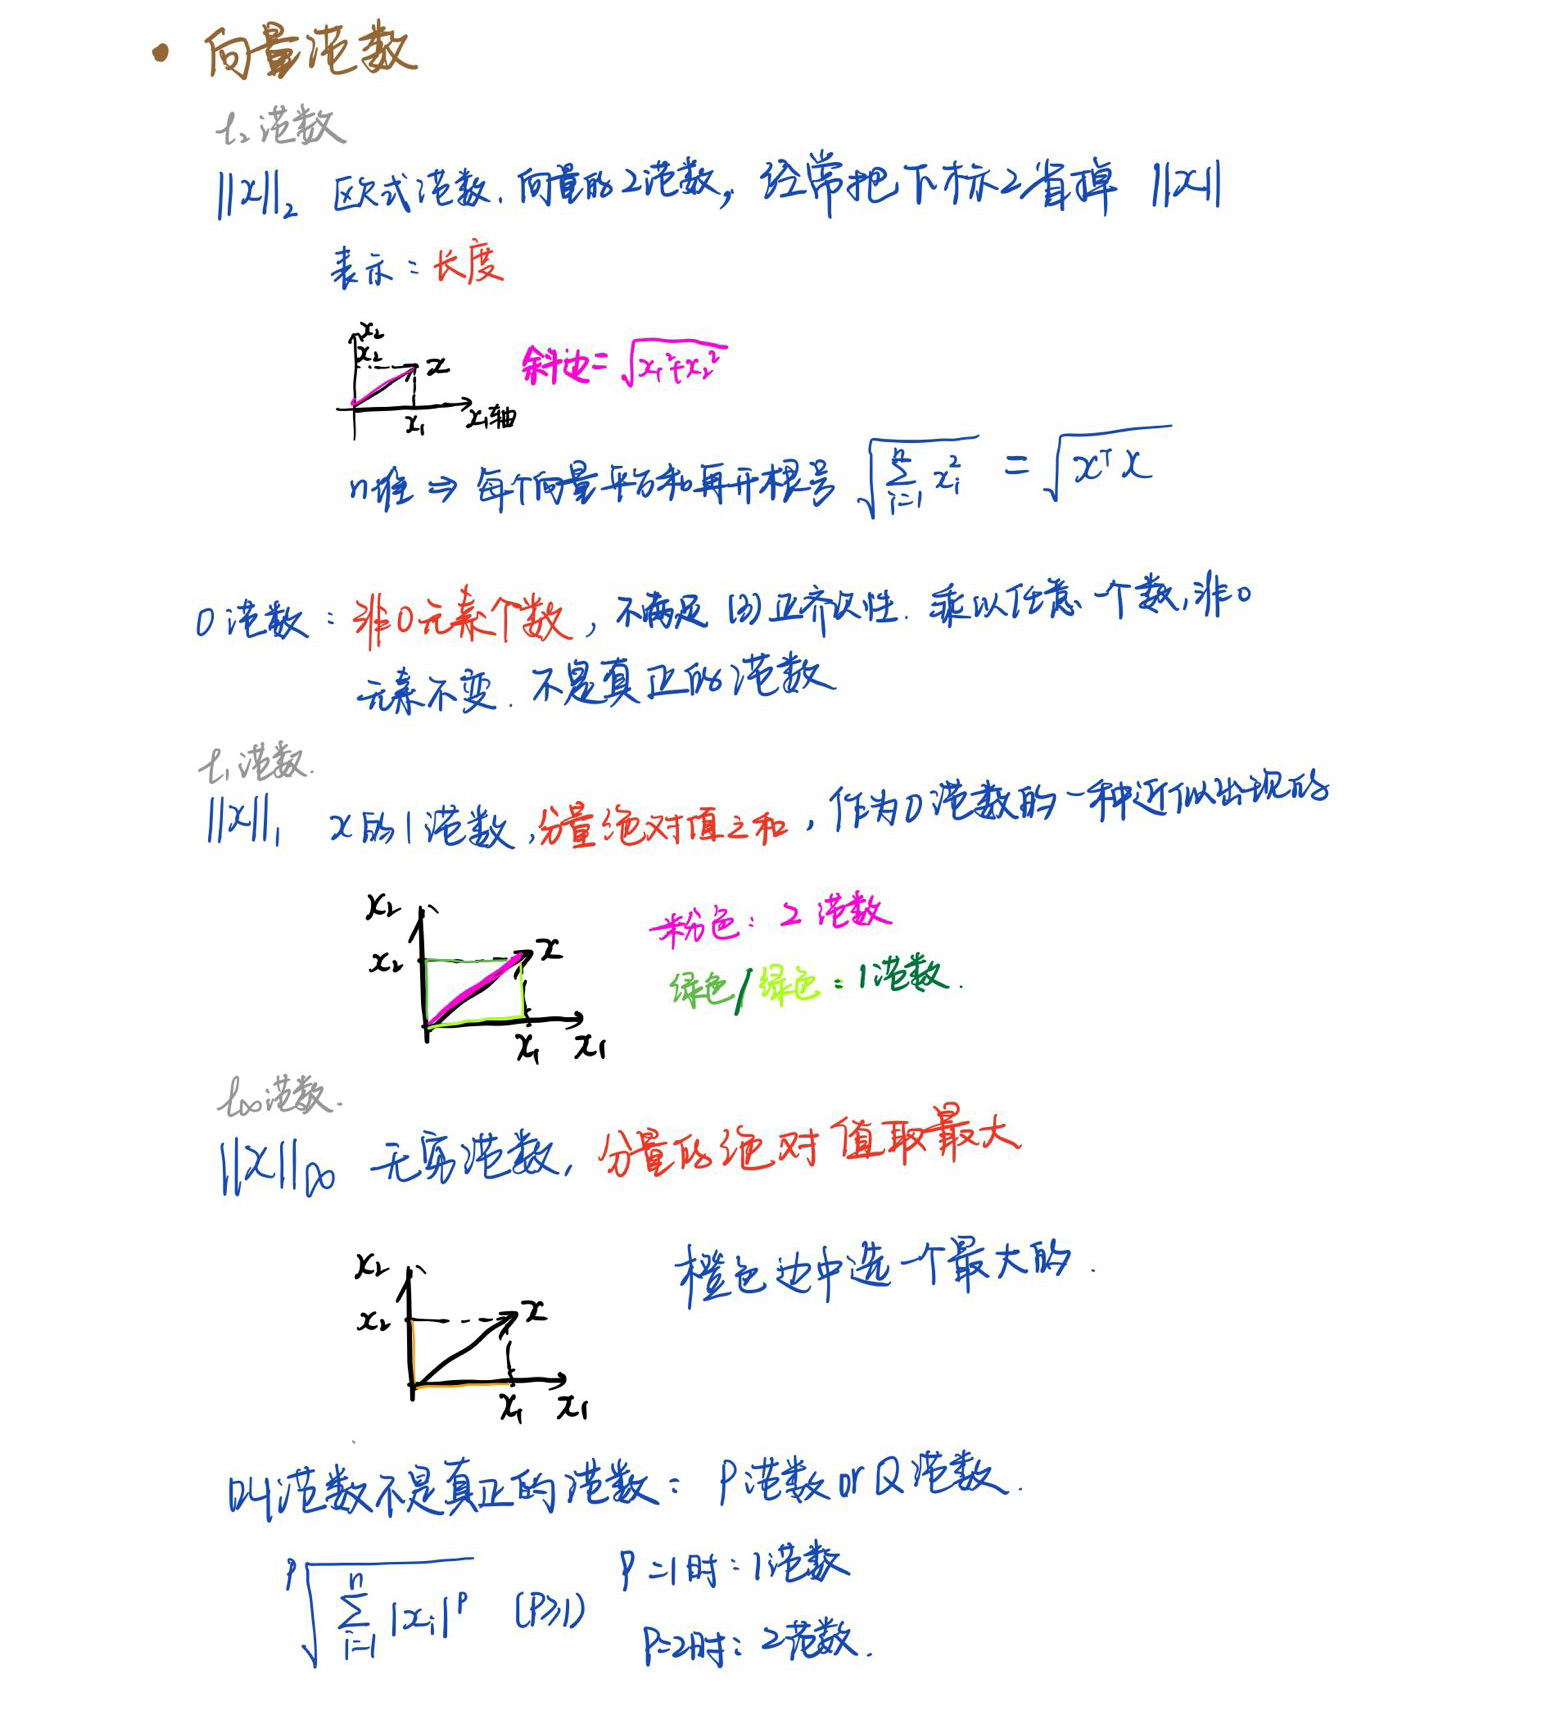 • 向量范数
ℓ₂范数
||x||₂ 欧式范数. 向量的2范数, 经常把下标2省掉 ||x||
表示: 长度
x₂
x₂
x
斜边= √(x₁²+x₂²)
x₁ x₁轴
n维 ⇒ 每个向量平方和再开根号 √(∑ᵢ₌₁ⁿ xᵢ²) = √(xᵀx)
0范数: 非0元素个数, 不满足(3)正齐次性. 乘以任意一个数,非0
元素不变. 不是真正的范数
ℓ₁范数.
||x||₁ x的1范数,分量绝对值之和, 作为0范数的一种近似出现的
x₂
x₂ x
粉色: 2范数
绿色/绿色: 1范数.
x₁ x₁
ℓ∞范数.
||x||∞ 无穷范数, 分量的绝对值取最大
x₂
橙色边中选一个最大的.
x₂ x
x₁ x₁
范数不是真正的范数: P范数 or Q范数.
ᵖ√(∑ᵢ₌₁ⁿ |xᵢ|ᵖ) (P≥1) P=1时: 1范数
P=2时: 2范数.